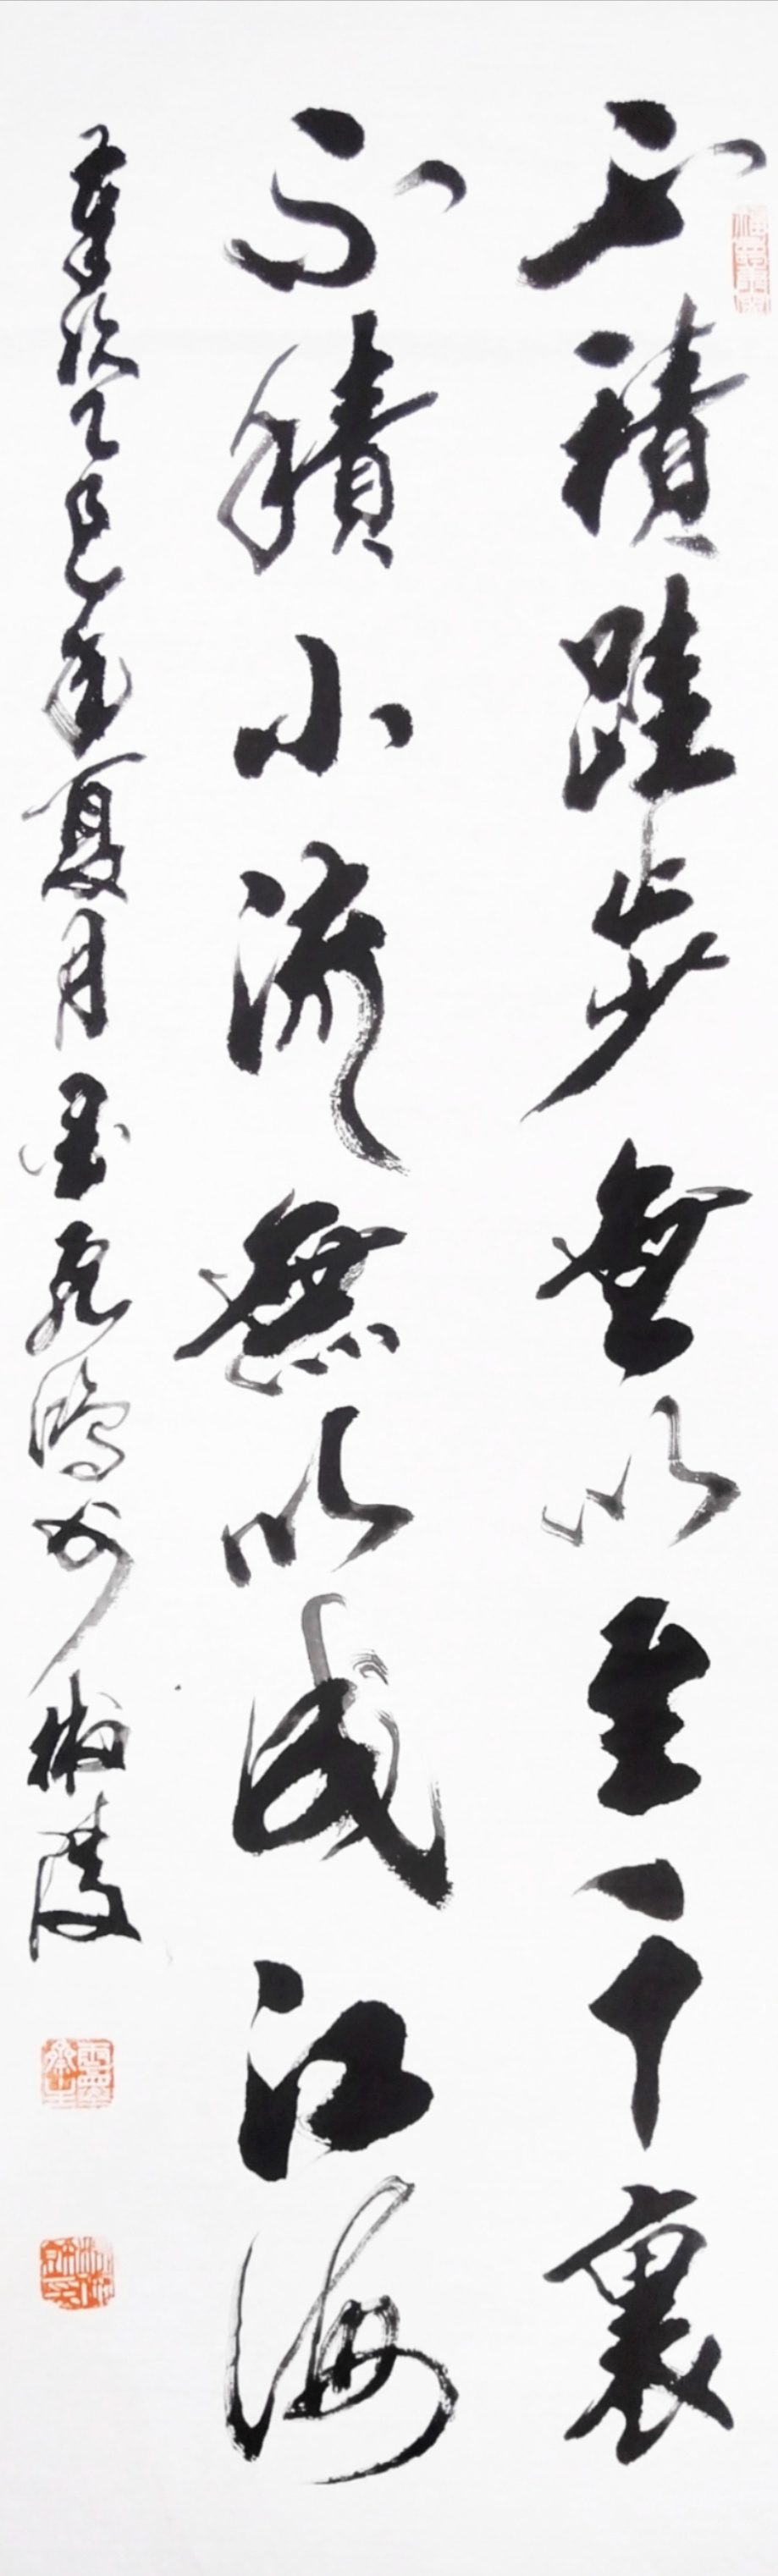 不積跬步無以至千裏
不積小流無以成江海
歲次乙巳年夏月